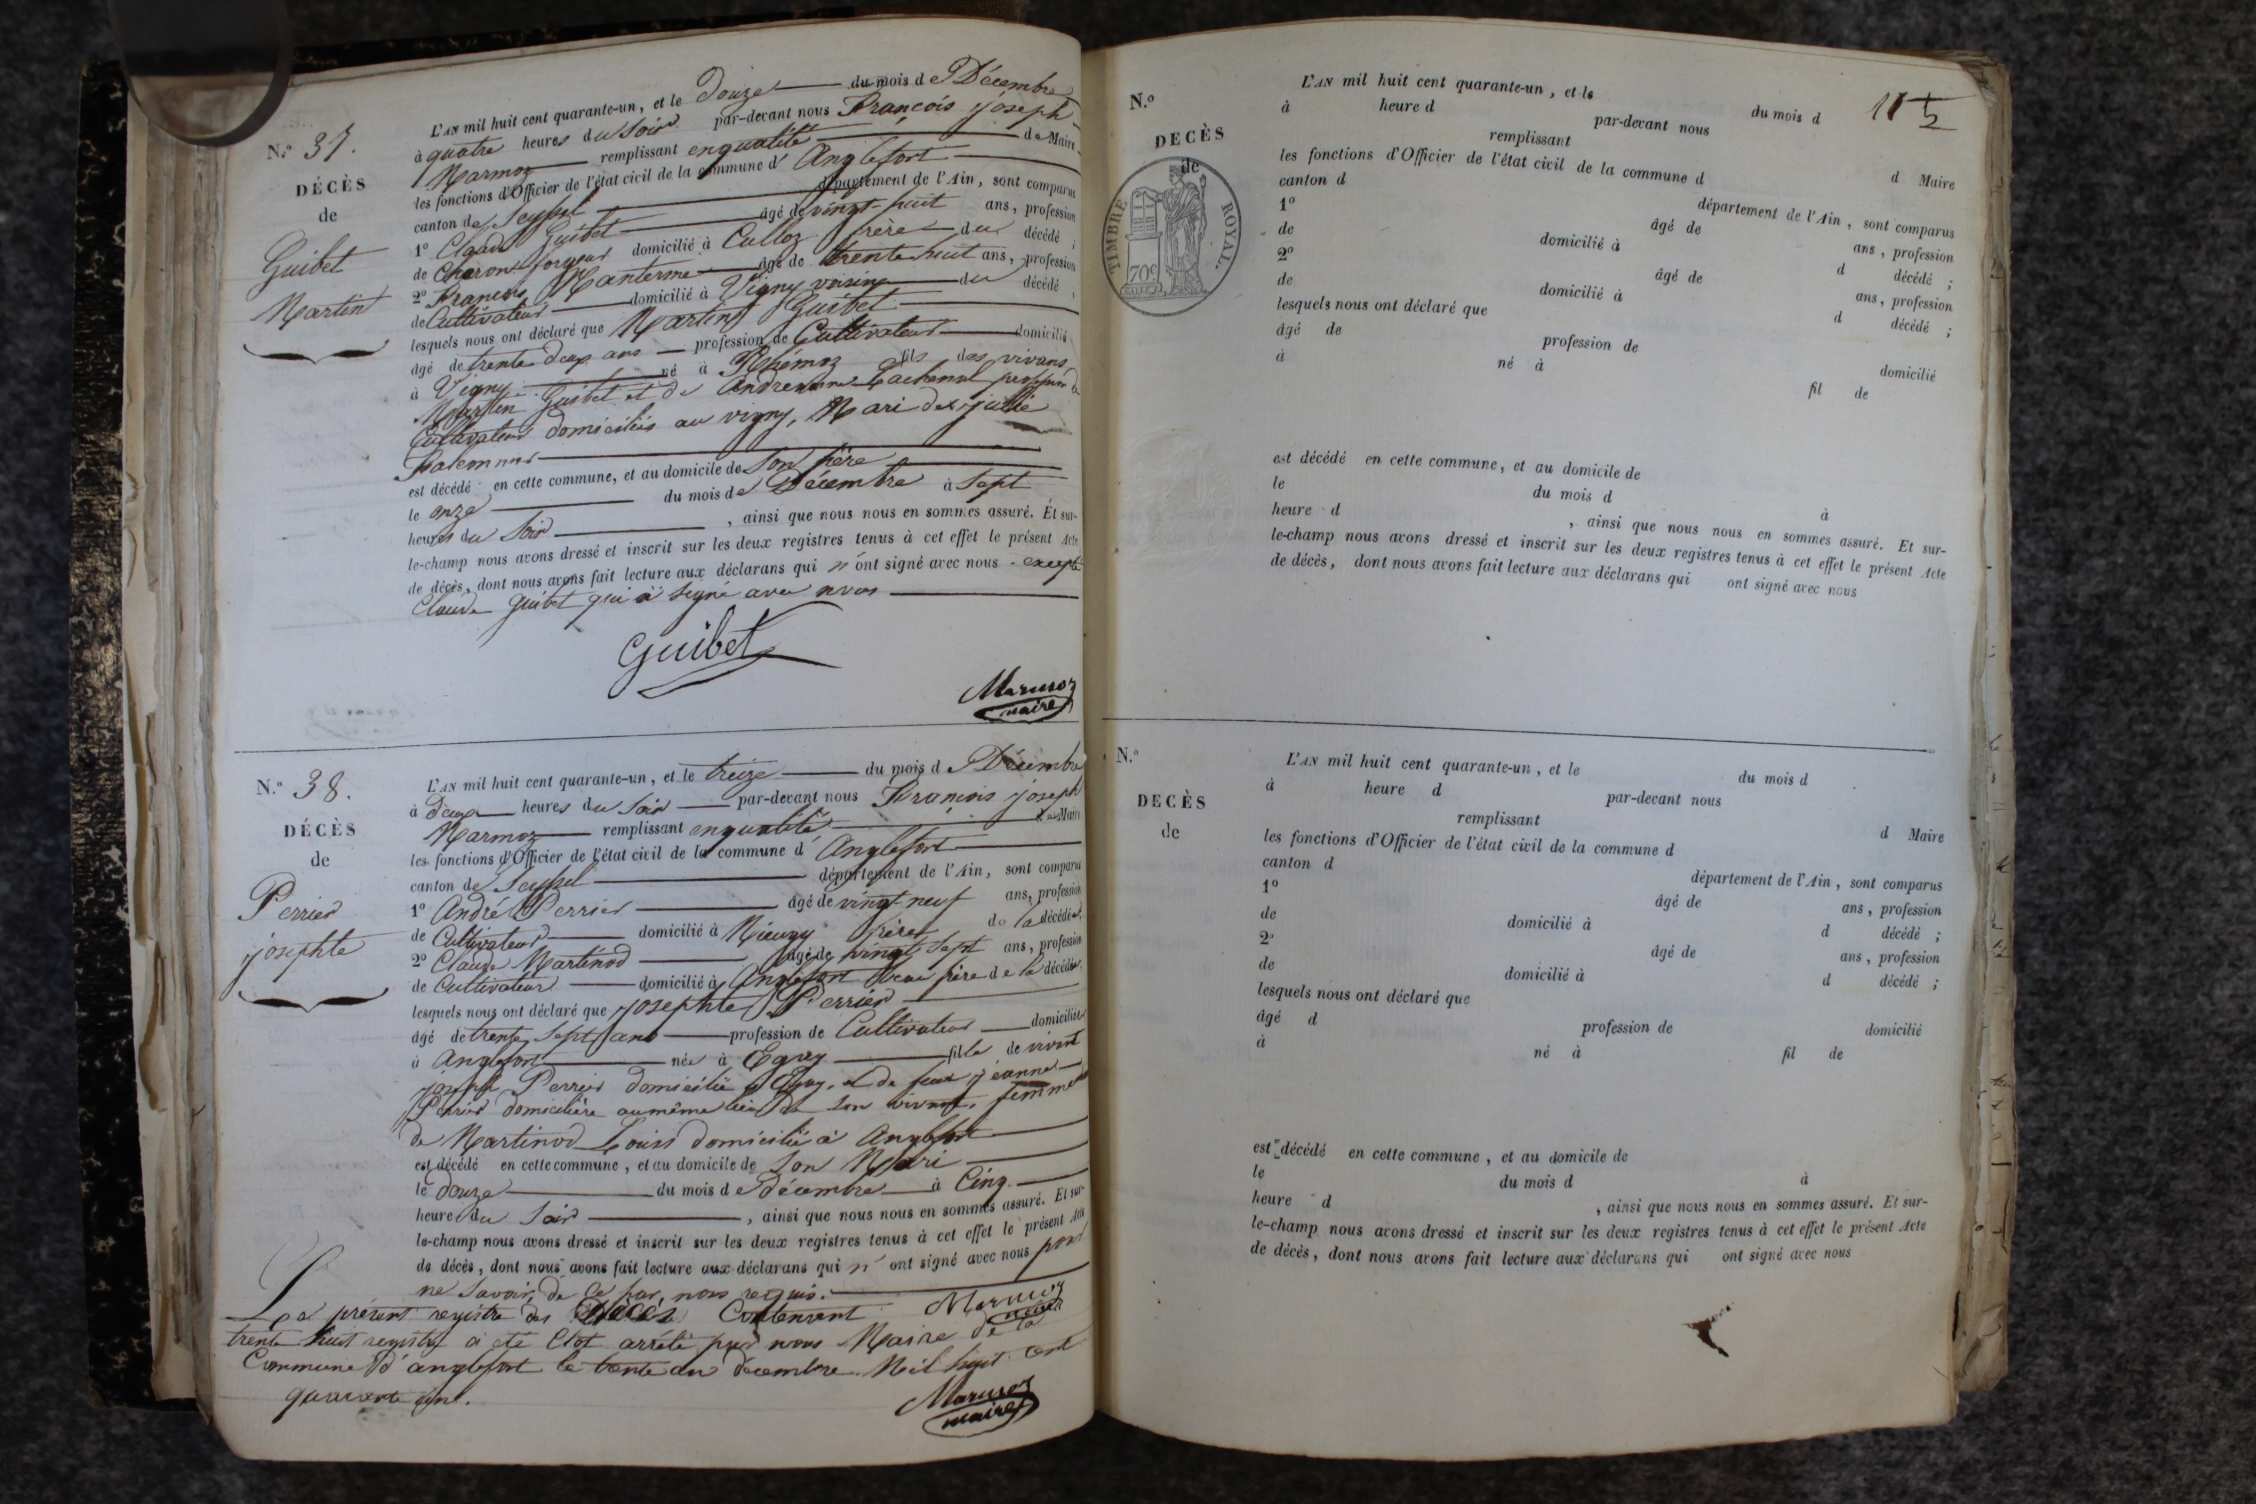 N.º 37.
DÉCÈS
de
Guibet
Martin
L'AN mil huit cent quarante-un, et le Douze du mois de Décembre
à quatre heures du Soir par-devant nous François joseph
Marmoz remplissant en qualité de Maire
les fonctions d'Officier de l'état civil de la commune d'Anglefort
canton de Seyssel département de l'Ain, sont comparus
1º Claude Guibet âgé de vingt huit ans, profession
de Charon forgeur domicilié à Culloz frère du décédé ;
2º François âgé de trente huit ans, profession
de Cultivateur domicilié à Vigny voisin du décédé ;
lesquels nous ont déclaré que Martin Guibet
âgé de trente deux ans profession de Cultivateur domicilié
à Vigny né à fils des vivans
Martin Guibet et de Andréanne Lachenal profession de
Cultivateur domiciliés au vigny, Mari de julie
est décédé en cette commune, et au domicile de Son père
le onze du mois de Décembre à Sept
heures du Soir, ainsi que nous nous en sommes assuré. Et sur-
le-champ nous avons dressé et inscrit sur les deux registres tenus à cet effet le présent Acte
de décès, dont nous avons fait lecture aux déclarans qui n'ont signé avec nous excepté
Claude Guibet qui a signé avec nous
Guibet
Marmoz
maire
N.º 38.
DÉCÈS
de
Perrier
josephte
L'AN mil huit cent quarante-un, et le treize du mois de Décembre
à Deux heures du Soir par-devant nous François joseph
Marmoz remplissant en qualité de Maire
les fonctions d'Officier de l'état civil de la commune d'Anglefort
canton de Seyssel département de l'Ain, sont comparus
1º André Perrier âgé de vingt neuf ans, profession
de Cultivateur domicilié à frère de la décédée
2º Claude Martinod âgé de vingt Sept ans, profession
de Cultivateur domicilié à Anglefort beau frère de la décédée
lesquels nous ont déclaré que josephte Perrier
âgé de trente Sept ans profession de Cultivateur domiciliée
à Anglefort née à fille de vivant
joseph Perrier domicilié à et de feue jeanne
Perrier domicilière au même lieu de Son vivant, femme
de Martinod Louis domicilié à Anglefort
est décédé en cette commune, et au domicile de Son Mari
le douze du mois de décembre à Cinq
heure du Soir, ainsi que nous nous en sommes assuré. Et sur-
le-champ nous avons dressé et inscrit sur les deux registres tenus à cet effet le présent Acte
de décès, dont nous avons fait lecture aux déclarans qui n'ont signé avec nous pour
ne Savoir, de ce par nous requis.
Marmoz
maire
Le présent registre des Décès Contenant
trente huit registre a été Clot arrêté par nous Maire de la
Commune d'anglefort le trente un décembre Mil huit cent
quarante un.
Marmoz
maire
11 1/2
N.º
DECÈS
de
TIMBRE ROYAL.
70c
L'AN mil huit cent quarante-un, et le du mois d
à heure d par-devant nous
remplissant d Maire
les fonctions d'Officier de l'état civil de la commune d
canton d département de l'Ain, sont comparus
1º âgé de ans, profession
de domicilié à d décédé ;
2º âgé de ans, profession
de domicilié à d décédé ;
lesquels nous ont déclaré que
âgé de profession de domicilié
à né à fil de
est décédé en cette commune, et au domicile de
le du mois d à
heure d , ainsi que nous nous en sommes assuré. Et sur-
le-champ nous avons dressé et inscrit sur les deux registres tenus à cet effet le présent Acte
de décès, dont nous avons fait lecture aux déclarans qui ont signé avec nous
N.º
DECÈS
de
L'AN mil huit cent quarante-un, et le du mois d
à heure d par-devant nous
remplissant d Maire
les fonctions d'Officier de l'état civil de la commune d
canton d département de l'Ain, sont comparus
1º âgé de ans, profession
de domicilié à d décédé ;
2º âgé de ans, profession
de domicilié à d décédé ;
lesquels nous ont déclaré que
âgé d profession de domicilié
à né à fil de
est décédé en cette commune, et au domicile de
le du mois d à
heure d , ainsi que nous nous en sommes assuré. Et sur-
le-champ nous avons dressé et inscrit sur les deux registres tenus à cet effet le présent Acte
de décès, dont nous avons fait lecture aux déclarans qui ont signé avec nous